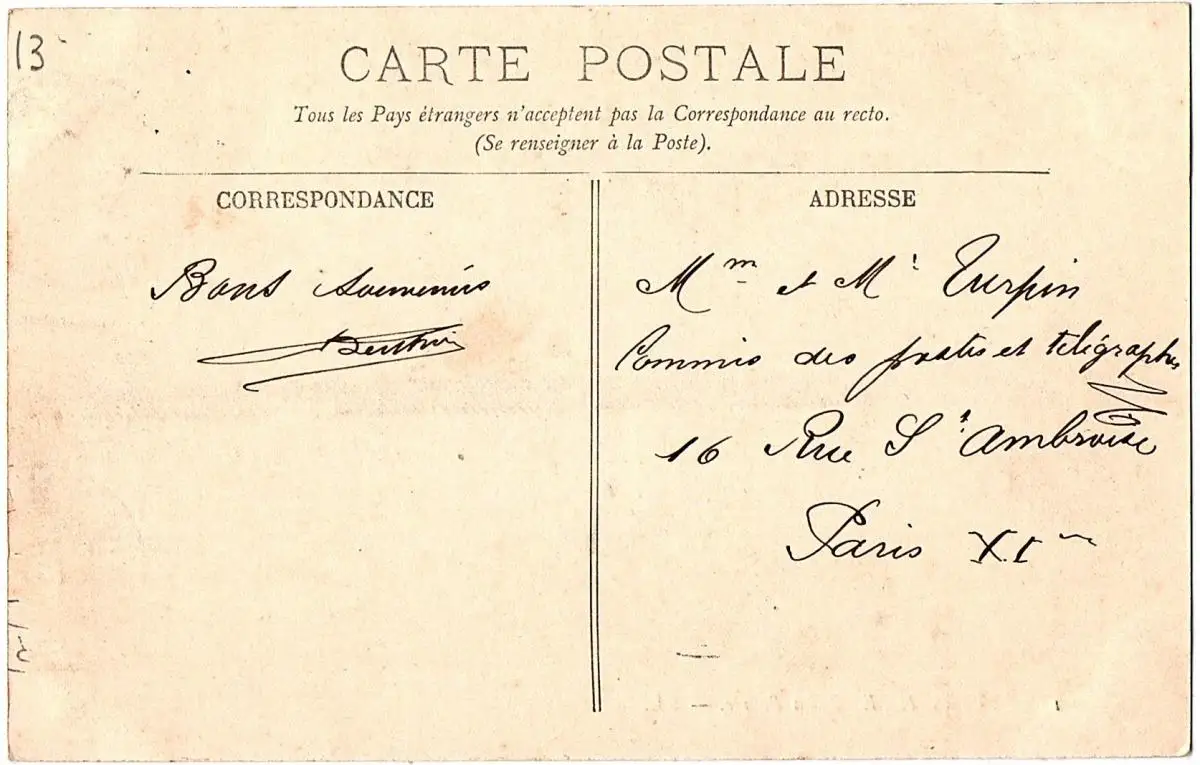 13
CARTE POSTALE
Tous les Pays étrangers n'acceptent pas la Correspondance au recto.
(Se renseigner à la Poste).
CORRESPONDANCE
Bons souvenirs
ADRESSE
Mm et Mr Turpin
Commis des postes et télégraphes
16 Rue St Ambroise
Paris XIm